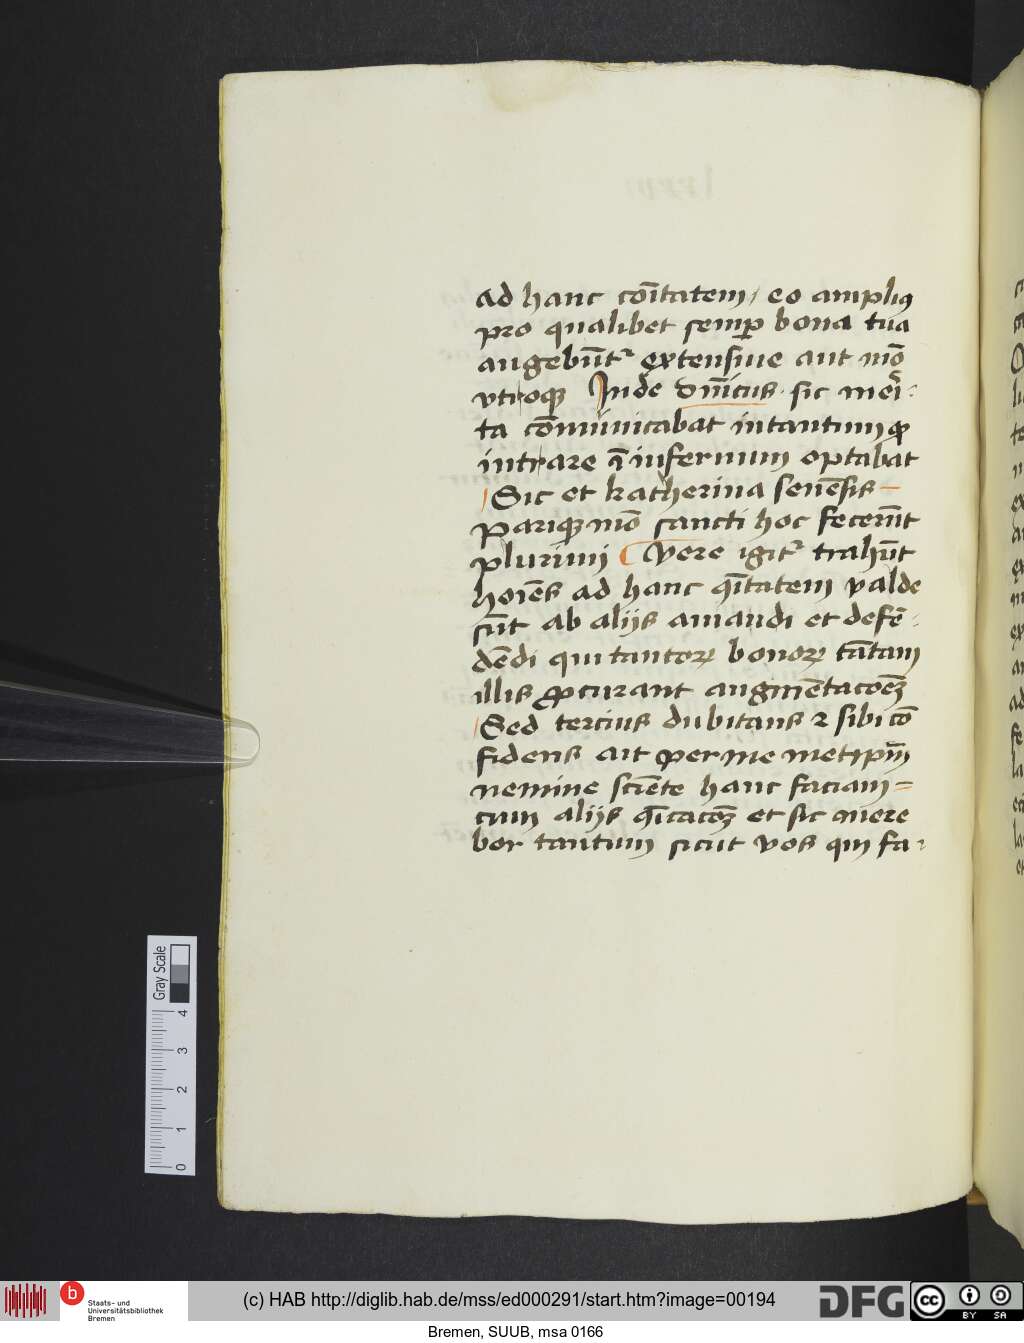 ad hanc cōītatem, eo amplius
pro qualibet semꝑ bona tua
augebūtr extensiue aut mō
vtroqꝫ Inde dn̄icus sic meri:
ta cōmunicabat intantum ꝙ
intrare in infernum optabat
Sic et katherina senēsis
Pariqꝫ mō sancti hoc fecerūt
plurimi Vere igitr trahūt
hoīēs ad hanc cōītatem valde
sūt ab aliis amandi et defē:
dēdi qui tantoꝝ bonoꝝ tātam
illis ꝓcurant augmētacōēꝫ
Sed tercius dubitans ⁊ sibi cō
fidens ait per me metipm̄
nemine sciēte hanc faciam
cum aliis cōīcacōꝫ et sic mere
bor tantum sicut vos qui fa:
Gray Scale
0 1 2 3 4
Staats- und
Universitätsbibliothek
Bremen
(c) HAB http://diglib.hab.de/mss/ed000291/start.htm?image=00194
DFG
cc BY SA
Bremen, SUUB, msa 0166